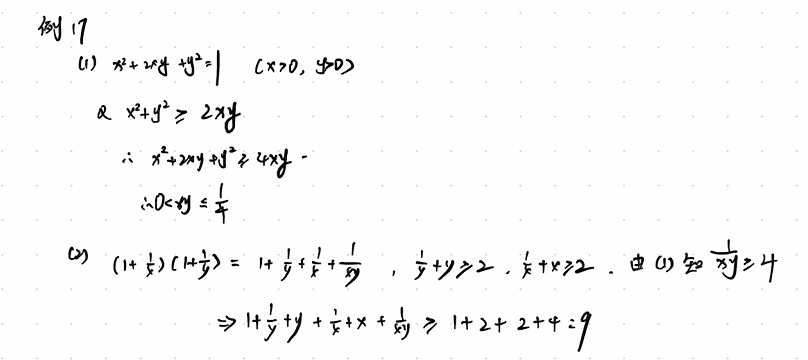 例17
(1) x²+2xy+y²=1 (x>0, y>0)
又 x²+y²≥2xy
∴ x²+2xy+y²≥4xy.
∴0<xy≤1/4
(2) (1+1/x)(1+1/y) = 1+1/y+1/x+1/xy , 1/y+y≥2 , 1/x+x≥2 . 由(1)知 1/xy≥4
⇒ 1+1/y+y+1/x+x+1/xy ≥ 1+2+2+4=9